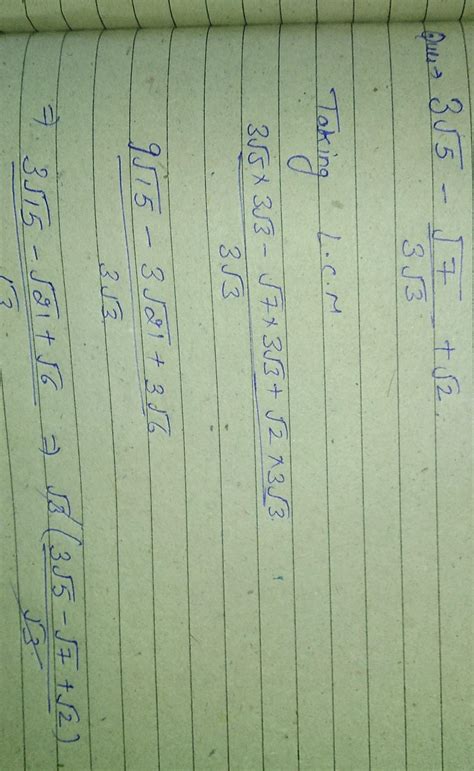 Qu → 3√5 - √7/3√3 + √2.
Taking L.C.M
3√5 × 3√3 - √7 × 3√3 + √2 × 3√3 / 3√3
9√15 - 3√21 + 3√6 / 3√3
⇒ 3√15 - √21 + √6 / √3 ⇒ √3 (3√5 - √7 + √2) / √3